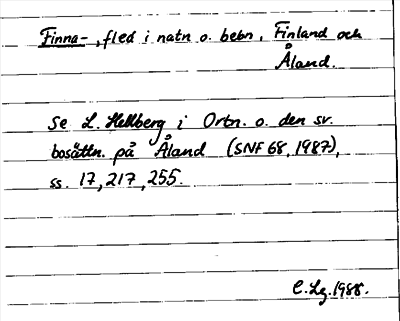 Finna-, fled i natn o. bebn. Finland och
Åland.
Se L. Hellberg i Ortn. o. den sv.
bosättn. på Åland (SNF 68, 1987),
ss. 17, 217, 255.
C. Lg. 1988.